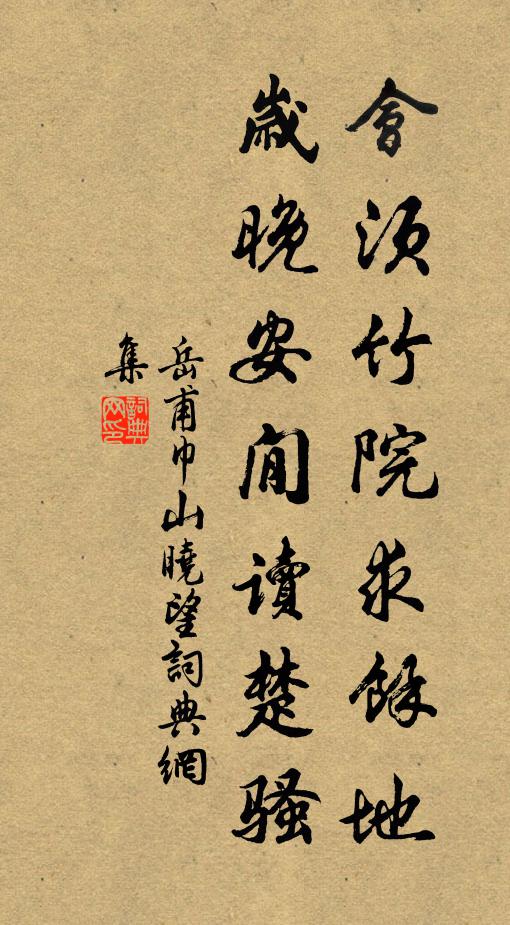 會須竹院求餘地
歲晚安閒讀楚騷
岳甫巾山曉望詞典網
集
詞典
网印